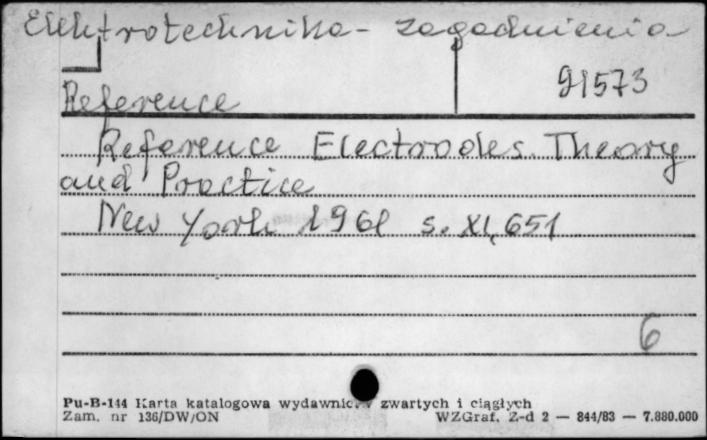 Elektrotechnika - zagadnienia
91573
Reference
Reference Electrodes. Theory
and Practice
New York 1961 s. XI, 651
6
Pu-B-144 Karta katalogowa wydawnictw zwartych i ciągłych
Zam. nr 136/DW/ON WZGraf. Z-d 2 — 844/83 — 7.880.000